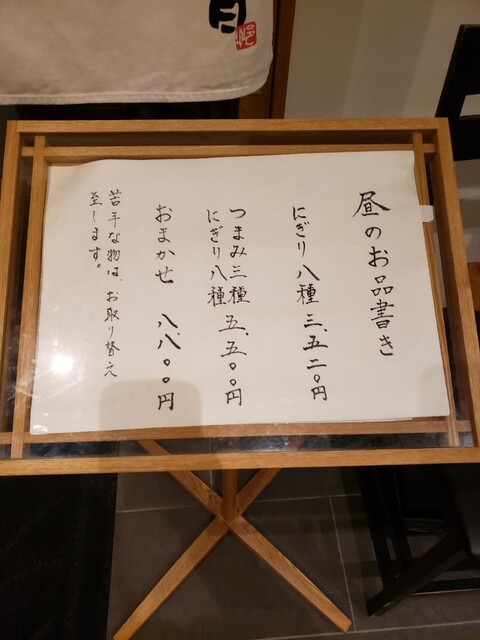 昼のお品書き
にぎり八種 三、五二〇円
つまみ三種
にぎり八種 五、五〇〇円
おまかせ 八、八〇〇円
苦手な物は、お取り替え
至します。